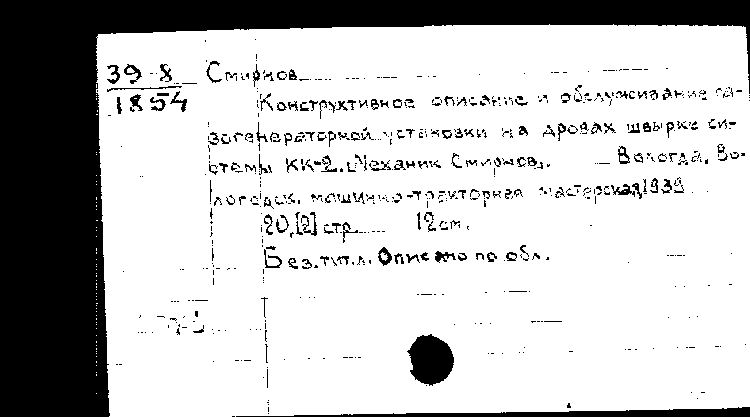 39-8 Смирнов
1854 Конструктивное описание и обслуживание га-
зогенераторной установки на дровах швырке си-
стемы КК-2. [Механик Смирнов]. Вологда, Во-
логодск. машинно-тракторная мастерская, 1939
20, [2] стр. 12 см.
Без. тит. л. Описано по обл.